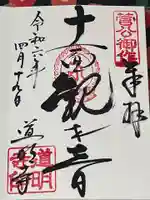 菅公御作
奉拝
十一面観世音
道明寺
令和六年
四月十九日